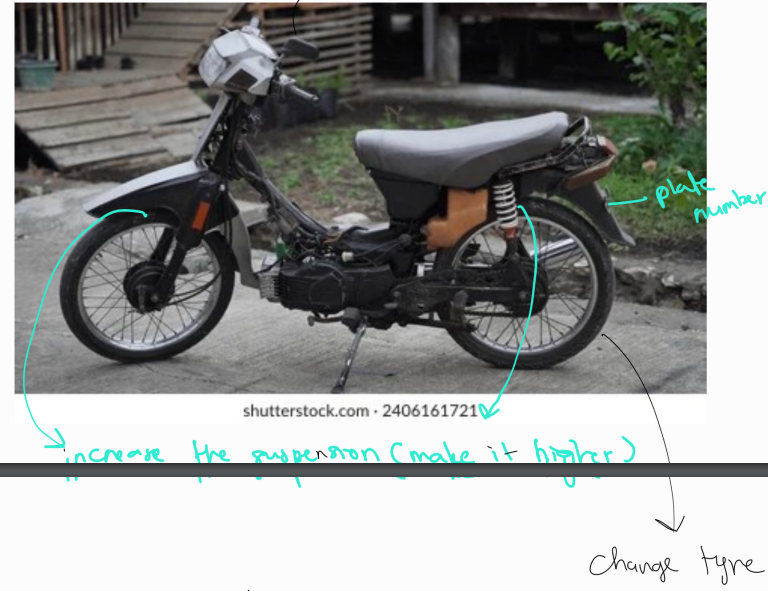 plate
number
shutterstock.com · 2406161721
increase the suspension (make it higher)
change tyre